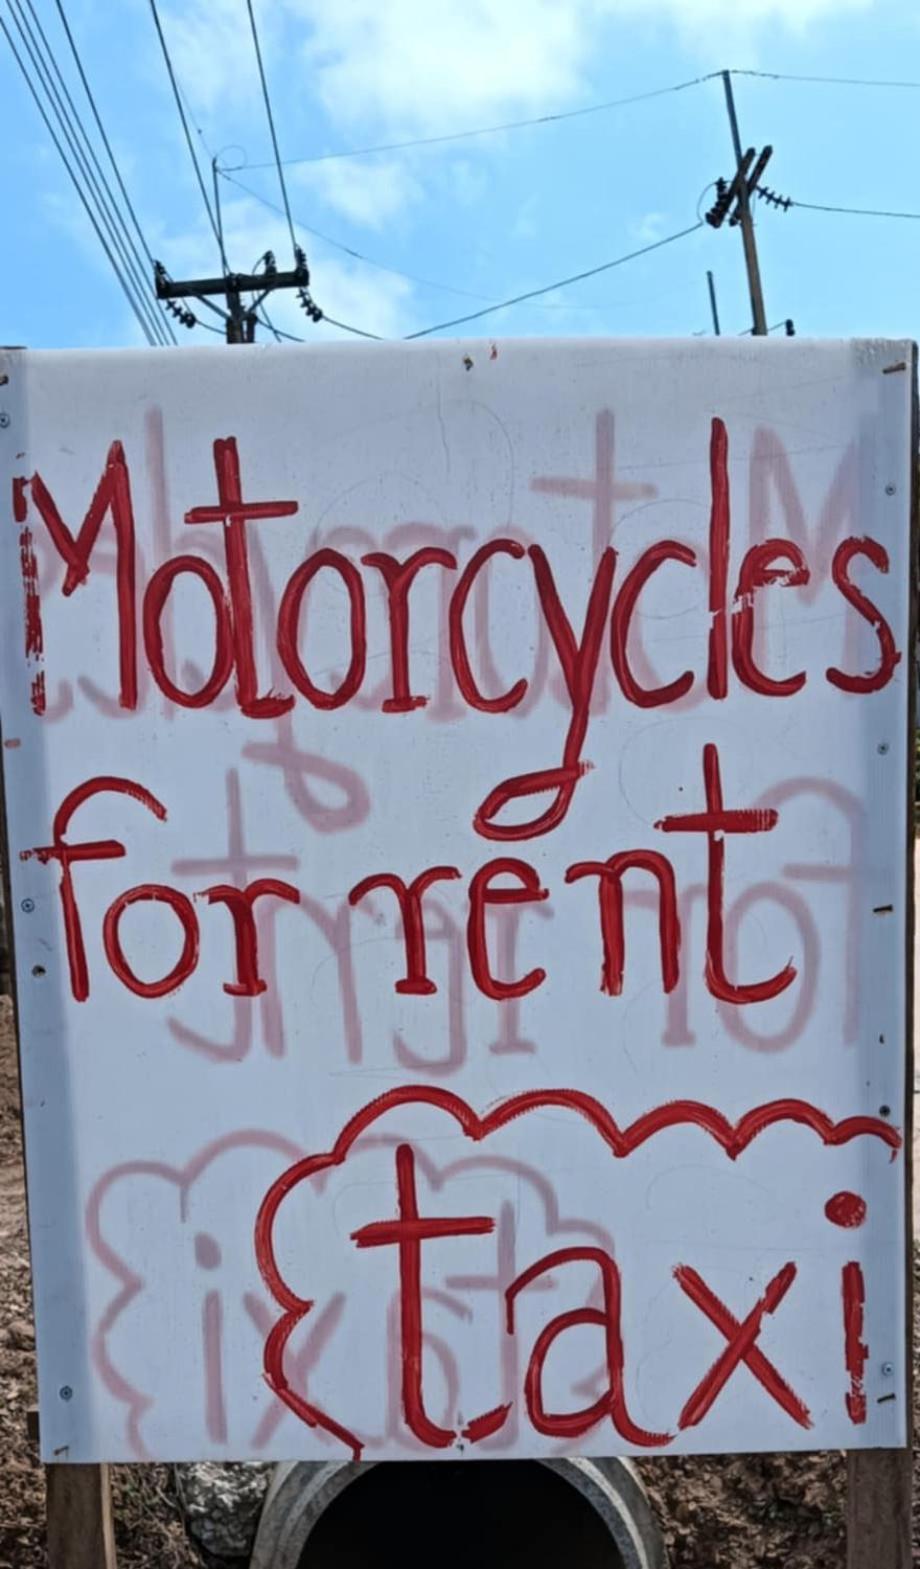 Motorcycles
for rent
taxi